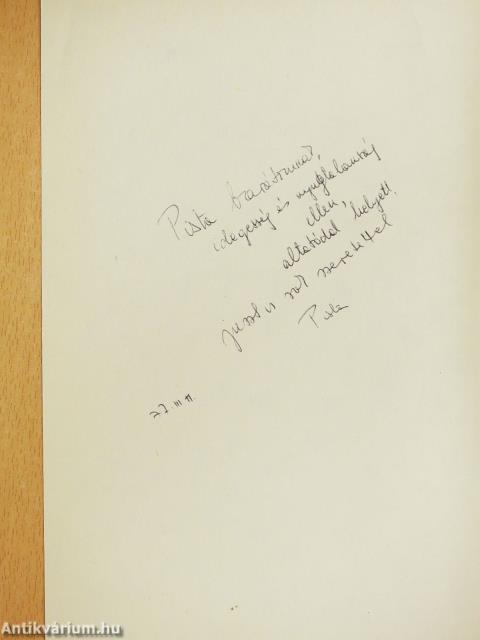 Pista barátomnak,
idegesség és nyugtalanság
ellen,
altatódal helyett.
sok szeretettel
Pista
Antikvárium.hu